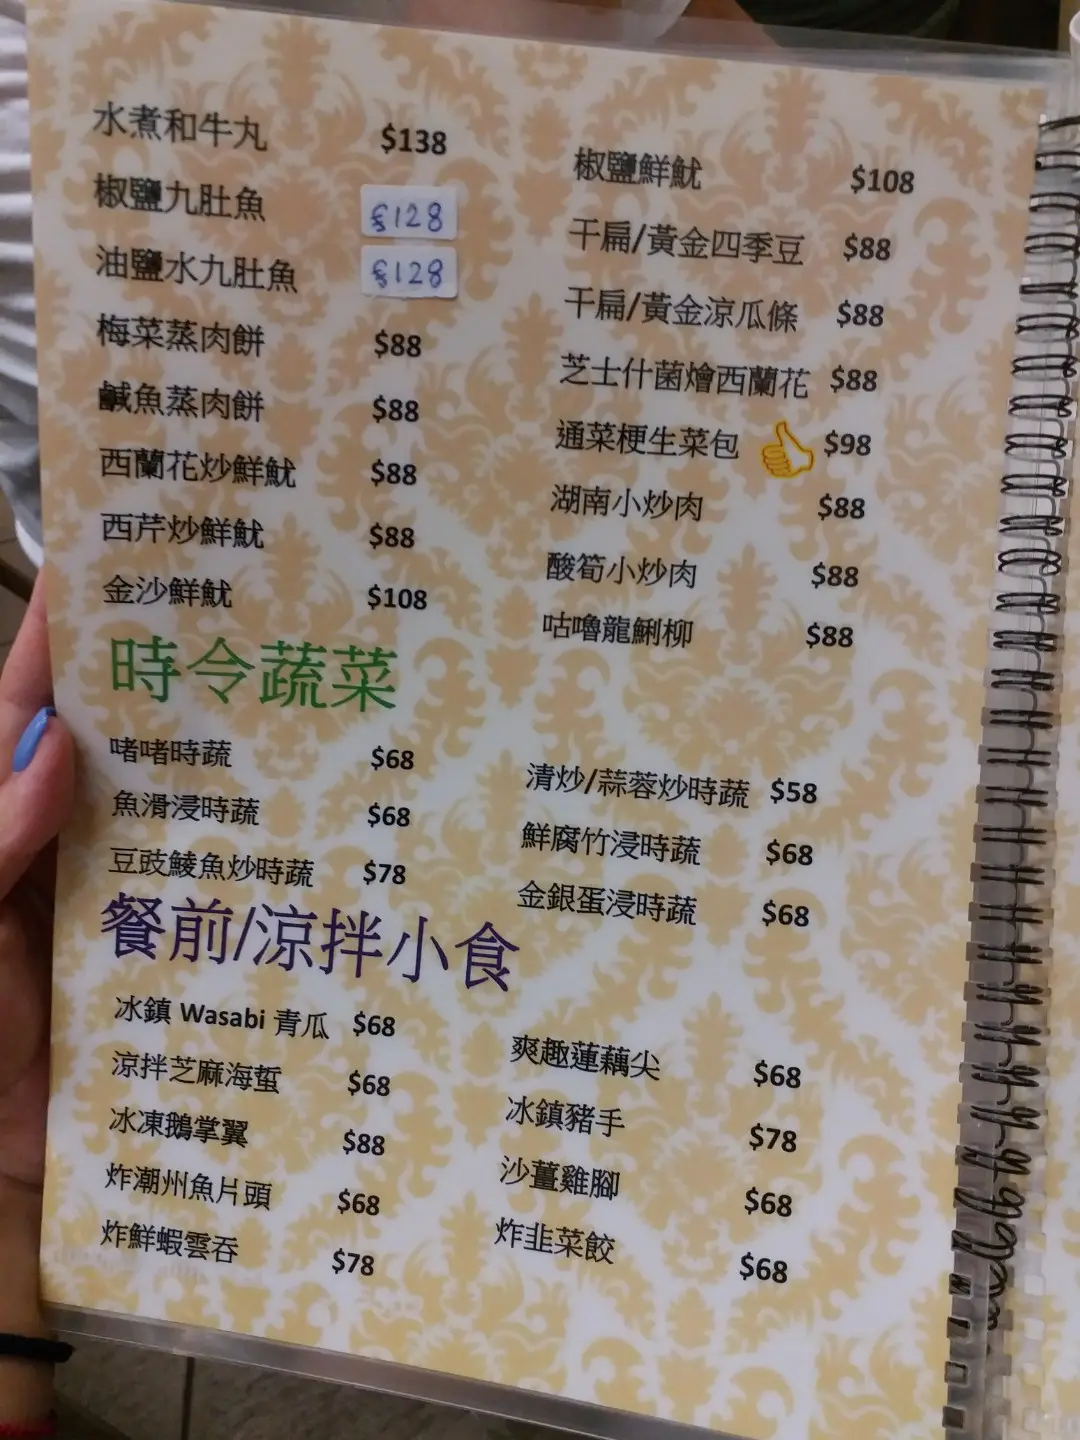 水煮和牛丸 $138
椒鹽九肚魚 $128
油鹽水九肚魚 $128
梅菜蒸肉餅 $88
鹹魚蒸肉餅 $88
西蘭花炒鮮魷 $88
西芹炒鮮魷 $88
金沙鮮魷 $108
椒鹽鮮魷 $108
干扁/黃金四季豆 $88
干扁/黃金涼瓜條 $88
芝士什菌燴西蘭花 $88
通菜梗生菜包 $98
湖南小炒肉 $88
酸筍小炒肉 $88
咕嚕龍脷柳 $88
時令蔬菜
啫啫時蔬 $68
魚滑浸時蔬 $68
豆豉鯪魚炒時蔬 $78
清炒/蒜蓉炒時蔬 $58
鮮腐竹浸時蔬 $68
金銀蛋浸時蔬 $68
餐前/涼拌小食
冰鎮 Wasabi 青瓜 $68
涼拌芝麻海蜇 $68
冰凍鵝掌翼 $88
炸潮州魚片頭 $68
炸鮮蝦雲吞 $78
爽趣蓮藕尖 $68
冰鎮豬手 $78
沙薑雞腳 $68
炸韭菜餃 $68